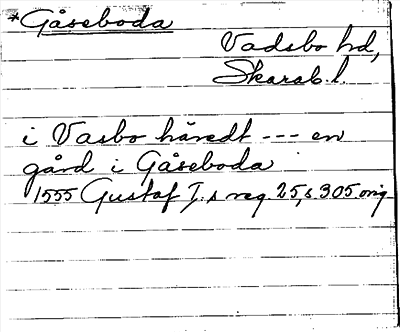 *Gåseboda
Vadsbo hd,
Skarab. l.
i Vasbo häredt --- en
gård i Gåseboda
1555 Gustaf I:s reg. 25, s. 305. orig.